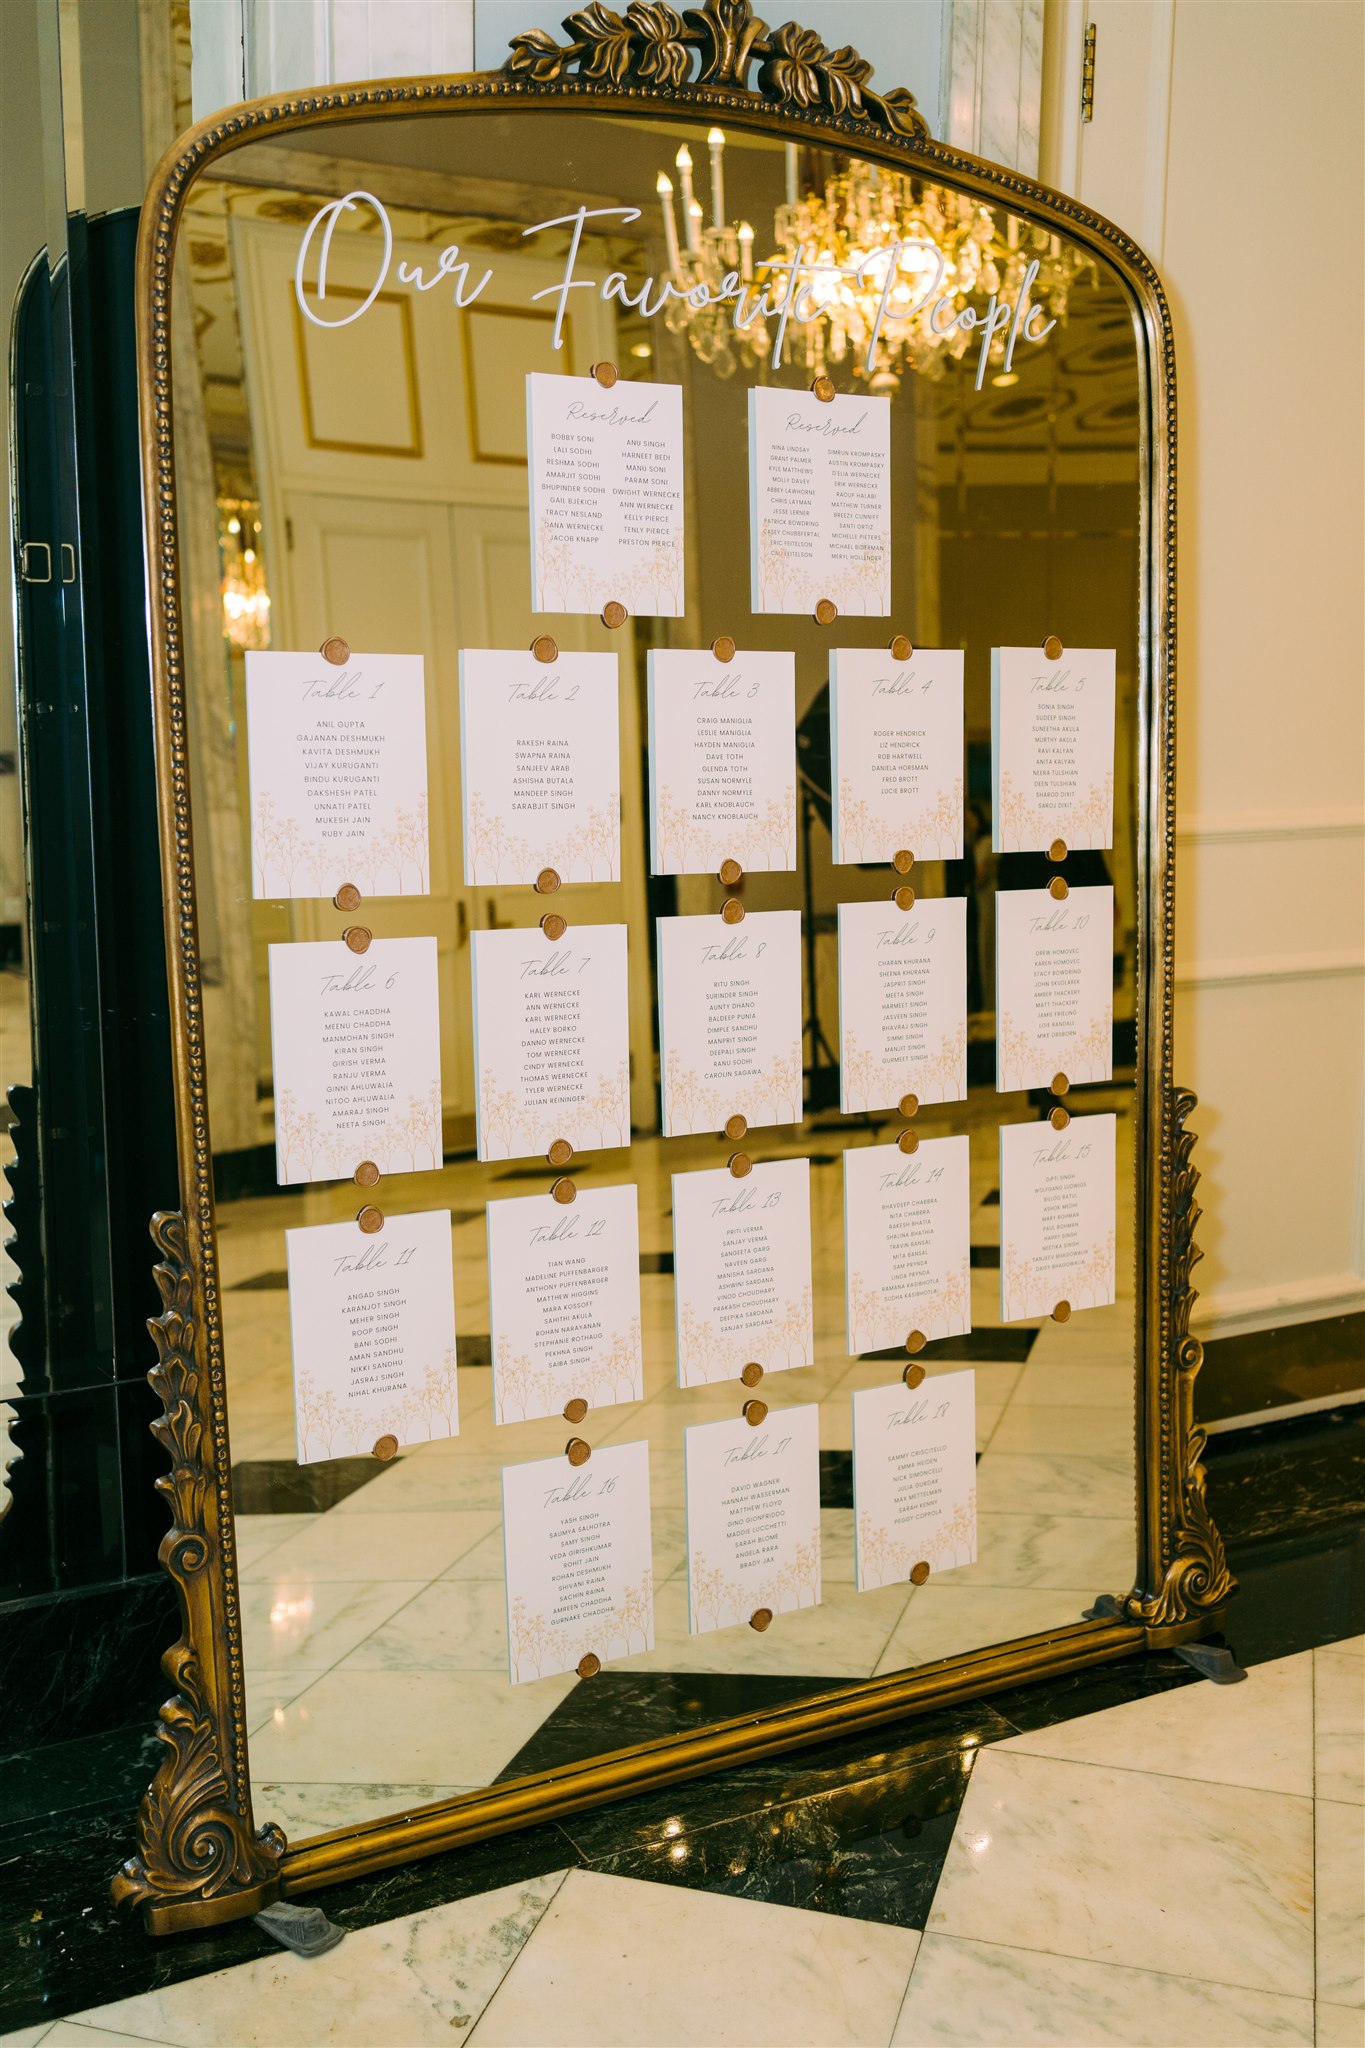 Our Favorite People
Reserved
BOBBY SONI
LALI SODHI
RESHMA SODHI
AMARJIT SODHI
BHUPINDER SODHI
GAIL BJEKICH
TRACY NESLAND
DANA WERNECKE
JACOB KNAPP
ANU SINGH
HARNEET BEDI
MANU SONI
PARAM SONI
DWIGHT WERNECKE
ANN WERNECKE
KELLY PIERCE
TENLY PIERCE
PRESTON PIERCE
Reserved
NINA LINDSAY
GRANT PALMER
KYLE MATTHEWS
MOLLY DAVEY
ABBEY LAWHORNE
CHRIS LAYMAN
JESSE LERNER
PATRICK BOWDRING
CASEY CHUBBFERTAL
ERIC FEITELSON
CALI FEITELSON
SIMRUN KROMPASKY
AUSTIN KROMPASKY
D'ELIA WERNECKE
ERIK WERNECKE
RAOUF HALABI
MATTHEW TURNER
BREEZY CUNNIFF
SANTI ORTIZ
MICHELLE PIETERS
MICHAEL BIDERMAN
MERYL HOLLENDER
Table 1
ANIL GUPTA
GAJANAN DESHMUKH
KAVITA DESHMUKH
VIJAY KURUGANTI
BINDU KURUGANTI
DAKSHESH PATEL
UNNATI PATEL
MUKESH JAIN
RUBY JAIN
Table 2
RAKESH RAINA
SWAPNA RAINA
SANJEEV ARAB
ASHISHA BUTALA
MANDEEP SINGH
SARABJIT SINGH
Table 3
CRAIG MANIGLIA
LESLIE MANIGLIA
HAYDEN MANIGLIA
DAVE TOTH
GLENDA TOTH
SUSAN NORMYLE
DANNY NORMYLE
KARL KNOBLAUCH
NANCY KNOBLAUCH
Table 4
ROGER HENDRICK
LIZ HENDRICK
ROB HARTWELL
DANIELA HORSMAN
FRED BROTT
LUCIE BROTT
Table 5
SONIA SINGH
SUDEEP SINGH
SUNEETHA AKULA
MURTHY AKULA
RAVI KALYAN
ANITA KALYAN
NEERA TULSHIAN
DEEN TULSHIAN
SHAROD DIXIT
SAROJ DIXIT
Table 6
KAWAL CHADDHA
MEENU CHADDHA
MANMOHAN SINGH
KIRAN SINGH
GIRISH VERMA
RANJU VERMA
GINNI AHLUWALIA
NITOO AHLUWALIA
AMARAJ SINGH
NEETA SINGH
Table 7
KARL WERNECKE
ANN WERNECKE
KARL WERNECKE
HALEY BORKO
DANNO WERNECKE
TOM WERNECKE
CINDY WERNECKE
THOMAS WERNECKE
TYLER WERNECKE
JULIAN REININGER
Table 8
RITU SINGH
SURINDER SINGH
AUNTY DHANO
BALDEEP PUNIA
DIMPLE SANDHU
MANPRIT SINGH
DEEPALI SINGH
RANU SODHI
CAROLIN SAGAWA
Table 9
CHARAN KHURANA
SHEENA KHURANA
JASPRIT SINGH
MEETA SINGH
HARMEET SINGH
JASVEEN SINGH
BHAVRAJ SINGH
SIMMI SINGH
MANJIT SINGH
GURMEET SINGH
Table 10
DREW HOMOVEC
KAREN HOMOVEC
STACY BOWDRING
JOHN SKUDLAREK
AMBER THACKERY
MATT THACKERY
JAMIE FRIELING
LOIE RANDALL
MIKE ORSBORN
Table 11
ANGAD SINGH
KARANJOT SINGH
MEHER SINGH
ROOP SINGH
BANI SODHI
AMAN SANDHU
NIKKI SANDHU
JASRAJ SINGH
NIHAL KHURANA
Table 12
TIAN WANG
MADELINE PUFFENBARGER
ANTHONY PUFFENBARGER
MATTHEW HIGGINS
MARA KOSSOFF
SAHITHI AKULA
ROHAN NARAYANAN
STEPHANIE ROTHAUG
PEKHNA SINGH
SAIBA SINGH
Table 13
PRITI VERMA
SANJAY VERMA
SANGEETA GARG
NAVEEN GARG
MANISHA SARDANA
ASHWINI SARDANA
VINOD CHOUDHARY
PRAKASH CHOUDHARY
DEEPIKA SARDANA
SANJAY SARDANA
Table 14
BHAVDEEP CHABBRA
NITA CHABBRA
RAKESH BHATIA
SHALINA BHATHIA
TRAVIN BANSAL
MITA BANSAL
SAM PRYNDA
LINDA PRYNDA
RAMANA KASIBHOTLA
SUDHA KASIBHOTLA
Table 15
DIPTI SINGH
WOLFGANG LUDWIGS
BILLOO BATUL
ASHOK MEDHI
MARY ROHMAN
PAUL ROHMAN
HARRY SINGH
NEETIKA SINGH
SANJEEV BHAGOWALIA
DAISY BHAGOWALIA
Table 16
YASH SINGH
SAUMYA SALHOTRA
SAMY SINGH
VEDA GIRISHKUMAR
ROHIT JAIN
ROHAN DESHMUKH
SHIVANI RAINA
SACHIN RAINA
AMREEN CHADDHA
GURNAKE CHADDHA
Table 17
DAVID WAGNER
HANNAH WASSERMAN
MATTHEW FLOYD
GINO GIONFRIDDO
MADDIE LUCCHETTI
SARAH BLOME
ANGELA RARA
BRADY JAX
Table 18
SAMMY CRISCITELLO
EMMA HEIDEN
NICK SIMONCELLI
JULIA GURDAK
MAX METTELMAN
SARAH KENNY
PEGGY COPPOLA